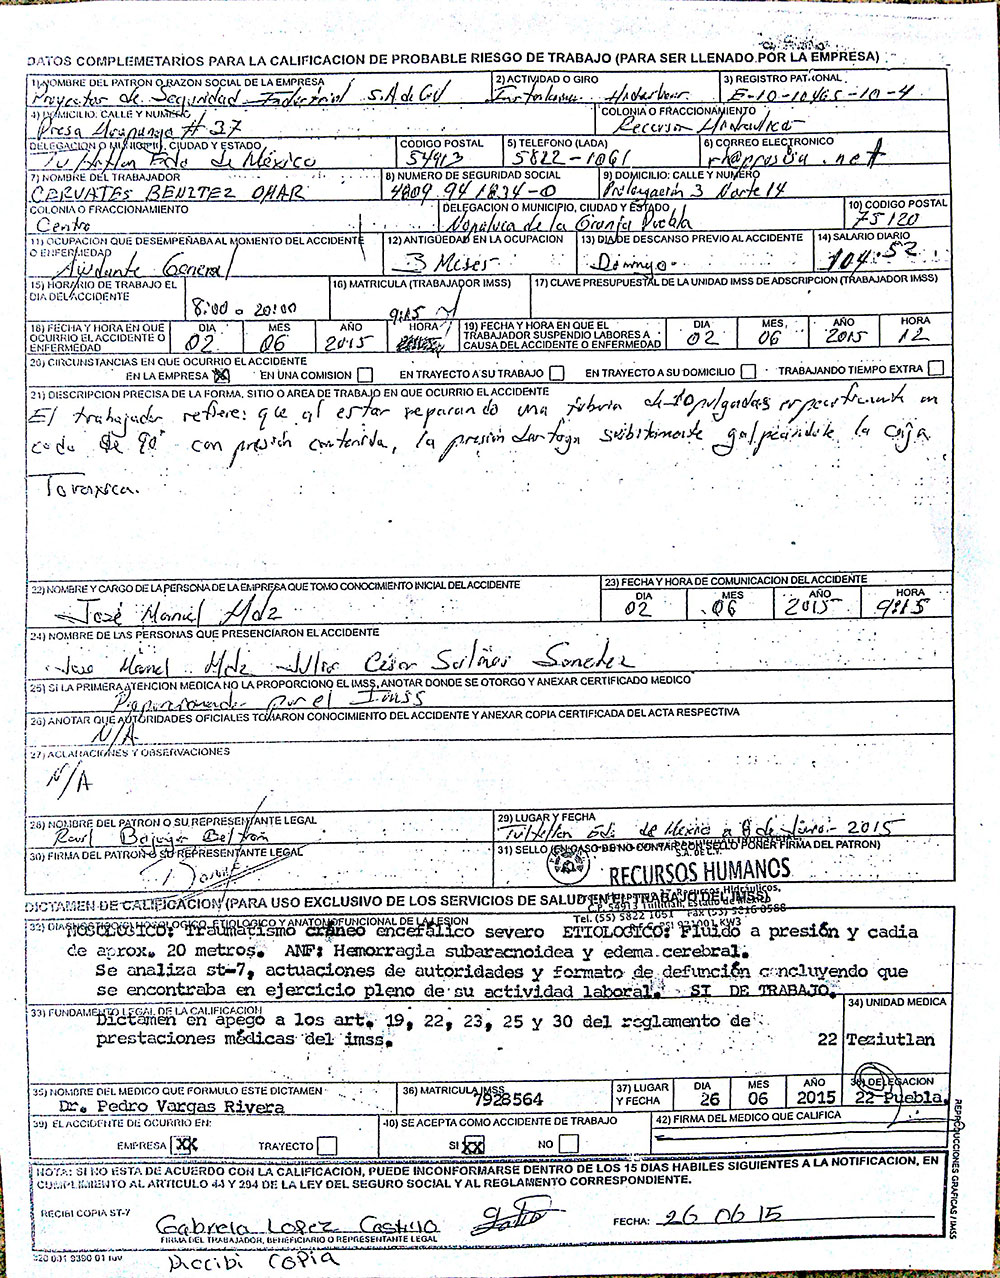 DATOS COMPLEMETARIOS PARA LA CALIFICACION DE PROBABLE RIESGO DE TRABAJO (PARA SER LLENADO POR LA EMPRESA)
1) NOMBRE DEL PATRON O RAZON SOCIAL DE LA EMPRESA 2) ACTIVIDAD O GIRO 3) REGISTRO PATRONAL
Proyectos de Seguridad Industrial S.A de CV E-10-10465-10-4
4) DOMICILIO: CALLE Y NUMERO COLONIA O FRACCIONAMIENTO
Presa # 37 Recursos Hidraulicos
DELEGACION O MUNICIPIO, CIUDAD Y ESTADO CODIGO POSTAL 5) TELEFONO (LADA) 6) CORREO ELECTRONICO
Tultitlan Edo de México 54913 5822-1061 .net
7) NOMBRE DEL TRABAJADOR 8) NUMERO DE SEGURIDAD SOCIAL 9) DOMICILIO: CALLE Y NUMERO
CERVATES BENITEZ OMAR 4809 94 1834-0 Prolongación 3 Norte 14
COLONIA O FRACCIONAMIENTO DELEGACION O MUNICIPIO, CIUDAD Y ESTADO 10) CODIGO POSTAL
Centro Nopaluca de la Granja Puebla 75120
11) OCUPACION QUE DESEMPEÑABA AL MOMENTO DEL ACCIDENTE O ENFERMEDAD 12) ANTIGÜEDAD EN LA OCUPACION 13) DIA DE DESCANSO PREVIO AL ACCIDENTE 14) SALARIO DIARIO
Ayudante General 3 Meses Domingo 104.52
15) HORARIO DE TRABAJO EL DIA DEL ACCIDENTE 16) MATRICULA (TRABAJADOR IMSS) 17) CLAVE PRESUPUESTAL DE LA UNIDAD IMSS DE ADSCRIPCION (TRABAJADOR IMSS)
8:00 a 20:00 9:15
18) FECHA Y HORA EN QUE OCURRIO EL ACCIDENTE O ENFERMEDAD DIA MES AÑO HORA 19) FECHA Y HORA EN QUE EL TRABAJADOR SUSPENDIO LABORES A CAUSA DEL ACCIDENTE O ENFERMEDAD DIA MES AÑO HORA
02 06 2015 02 06 2015 12
20) CIRCUNSTANCIAS EN QUE OCURRIO EL ACCIDENTE
EN LA EMPRESA X EN UNA COMISION EN TRAYECTO A SU TRABAJO EN TRAYECTO A SU DOMICILIO TRABAJANDO TIEMPO EXTRA
21) DESCRIPCION PRECISA DE LA FORMA, SITIO O AREA DE TRABAJO EN QUE OCURRIO EL ACCIDENTE
El trabajador refiere: que al estar reparando una tuberia de 10 pulgadas especificamente un
codo de 90° con presión contenida, la presión subitamente golpeándole la caja
Toraxica.
22) NOMBRE Y CARGO DE LA PERSONA DE LA EMPRESA QUE TOMO CONOCIMIENTO INICIAL DEL ACCIDENTE 23) FECHA Y HORA DE COMUNICACION DEL ACCIDENTE
DIA MES AÑO HORA
José Manuel Mdz 02 06 2015 9:15
24) NOMBRE DE LAS PERSONAS QUE PRESENCIARON EL ACCIDENTE
Jose Manuel Mdz Julio César Salinas Sanchez
25) SI LA PRIMERA ATENCION MEDICA NO LA PROPORCIONO EL IMSS, ANOTAR DONDE SE OTORGO Y ANEXAR CERTIFICADO MEDICO
Proporcionado por el Imss
26) ANOTAR QUE AUTORIDADES OFICIALES TOMARON CONOCIMIENTO DEL ACCIDENTE Y ANEXAR COPIA CERTIFICADA DEL ACTA RESPECTIVA
N/A
27) ACLARACIONES Y OBSERVACIONES
N/A
28) NOMBRE DEL PATRON O SU REPRESENTANTE LEGAL 29) LUGAR Y FECHA
Raul Beltrán Tultitlan Edo de Mexico a 8 de Junio 2015
30) FIRMA DEL PATRON O SU REPRESENTANTE LEGAL 31) SELLO (EN CASO DE NO CONTAR CON SELLO PONER FIRMA DEL PATRON)
S.A. DE C.V.
RECURSOS HUMANOS
37 Recursos Hidráulicos,
C.P. 54913 Tultitlán, Estado de México
Tel. (55) 5822 1051 Fax (53) 5816 0588
DICTAMEN DE CALIFICACION (PARA USO EXCLUSIVO DE LOS SERVICIOS DE SALUD EN EL TRABAJO DEL IMSS)
32) DIAGNOSTICO NOSOLOGICO, ETIOLOGICO Y ANATOMOFUNCIONAL DE LA LESION
NOSOLOGICO: Traumatismo cráneo encefálico severo ETIOLOGICO: Fluido a presión y cadia
de aprox. 20 metros. ANF: Hemorragia subaracnoidea y edema cerebral.
Se analiza st-7, actuaciones de autoridades y formato de defunción concluyendo que
se encontraba en ejercicio pleno de su actividad laboral. SI DE TRABAJO.
33) FUNDAMENTO LEGAL DE LA CALIFICACION 34) UNIDAD MEDICA
Dictamen en apego a los art. 19, 22, 23, 25 y 30 del reglamento de
prestaciones médicas del imss. 22 Teziutlan
35) NOMBRE DEL MEDICO QUE FORMULO ESTE DICTAMEN 36) MATRICULA IMSS 37) LUGAR Y FECHA DIA MES AÑO 38) DELEGACION
Dr. Pedro Vargas Rivera 7928564 26 06 2015 22 Puebla.
39) EL ACCIDENTE OCURRIO EN: 40) SE ACEPTA COMO ACCIDENTE DE TRABAJO 42) FIRMA DEL MEDICO QUE CALIFICA
EMPRESA XX TRAYECTO SI XX NO
NOTA: SI NO ESTA DE ACUERDO CON LA CALIFICACION, PUEDE INCONFORMARSE DENTRO DE LOS 15 DIAS HABILES SIGUIENTES A LA NOTIFICACION, EN
CUMPLIMIENTO AL ARTICULO 44 Y 294 DE LA LEY DEL SEGURO SOCIAL Y AL REGLAMENTO CORRESPONDIENTE.
RECIBI COPIA ST-7 Gabriela Lopez Castillo FECHA: 26 06 15
FIRMA DEL TRABAJADOR, BENEFICIARIO O REPRESENTANTE LEGAL
Reccibi COPIA
REPRODUCCIONES GRAFICAS / IMSS